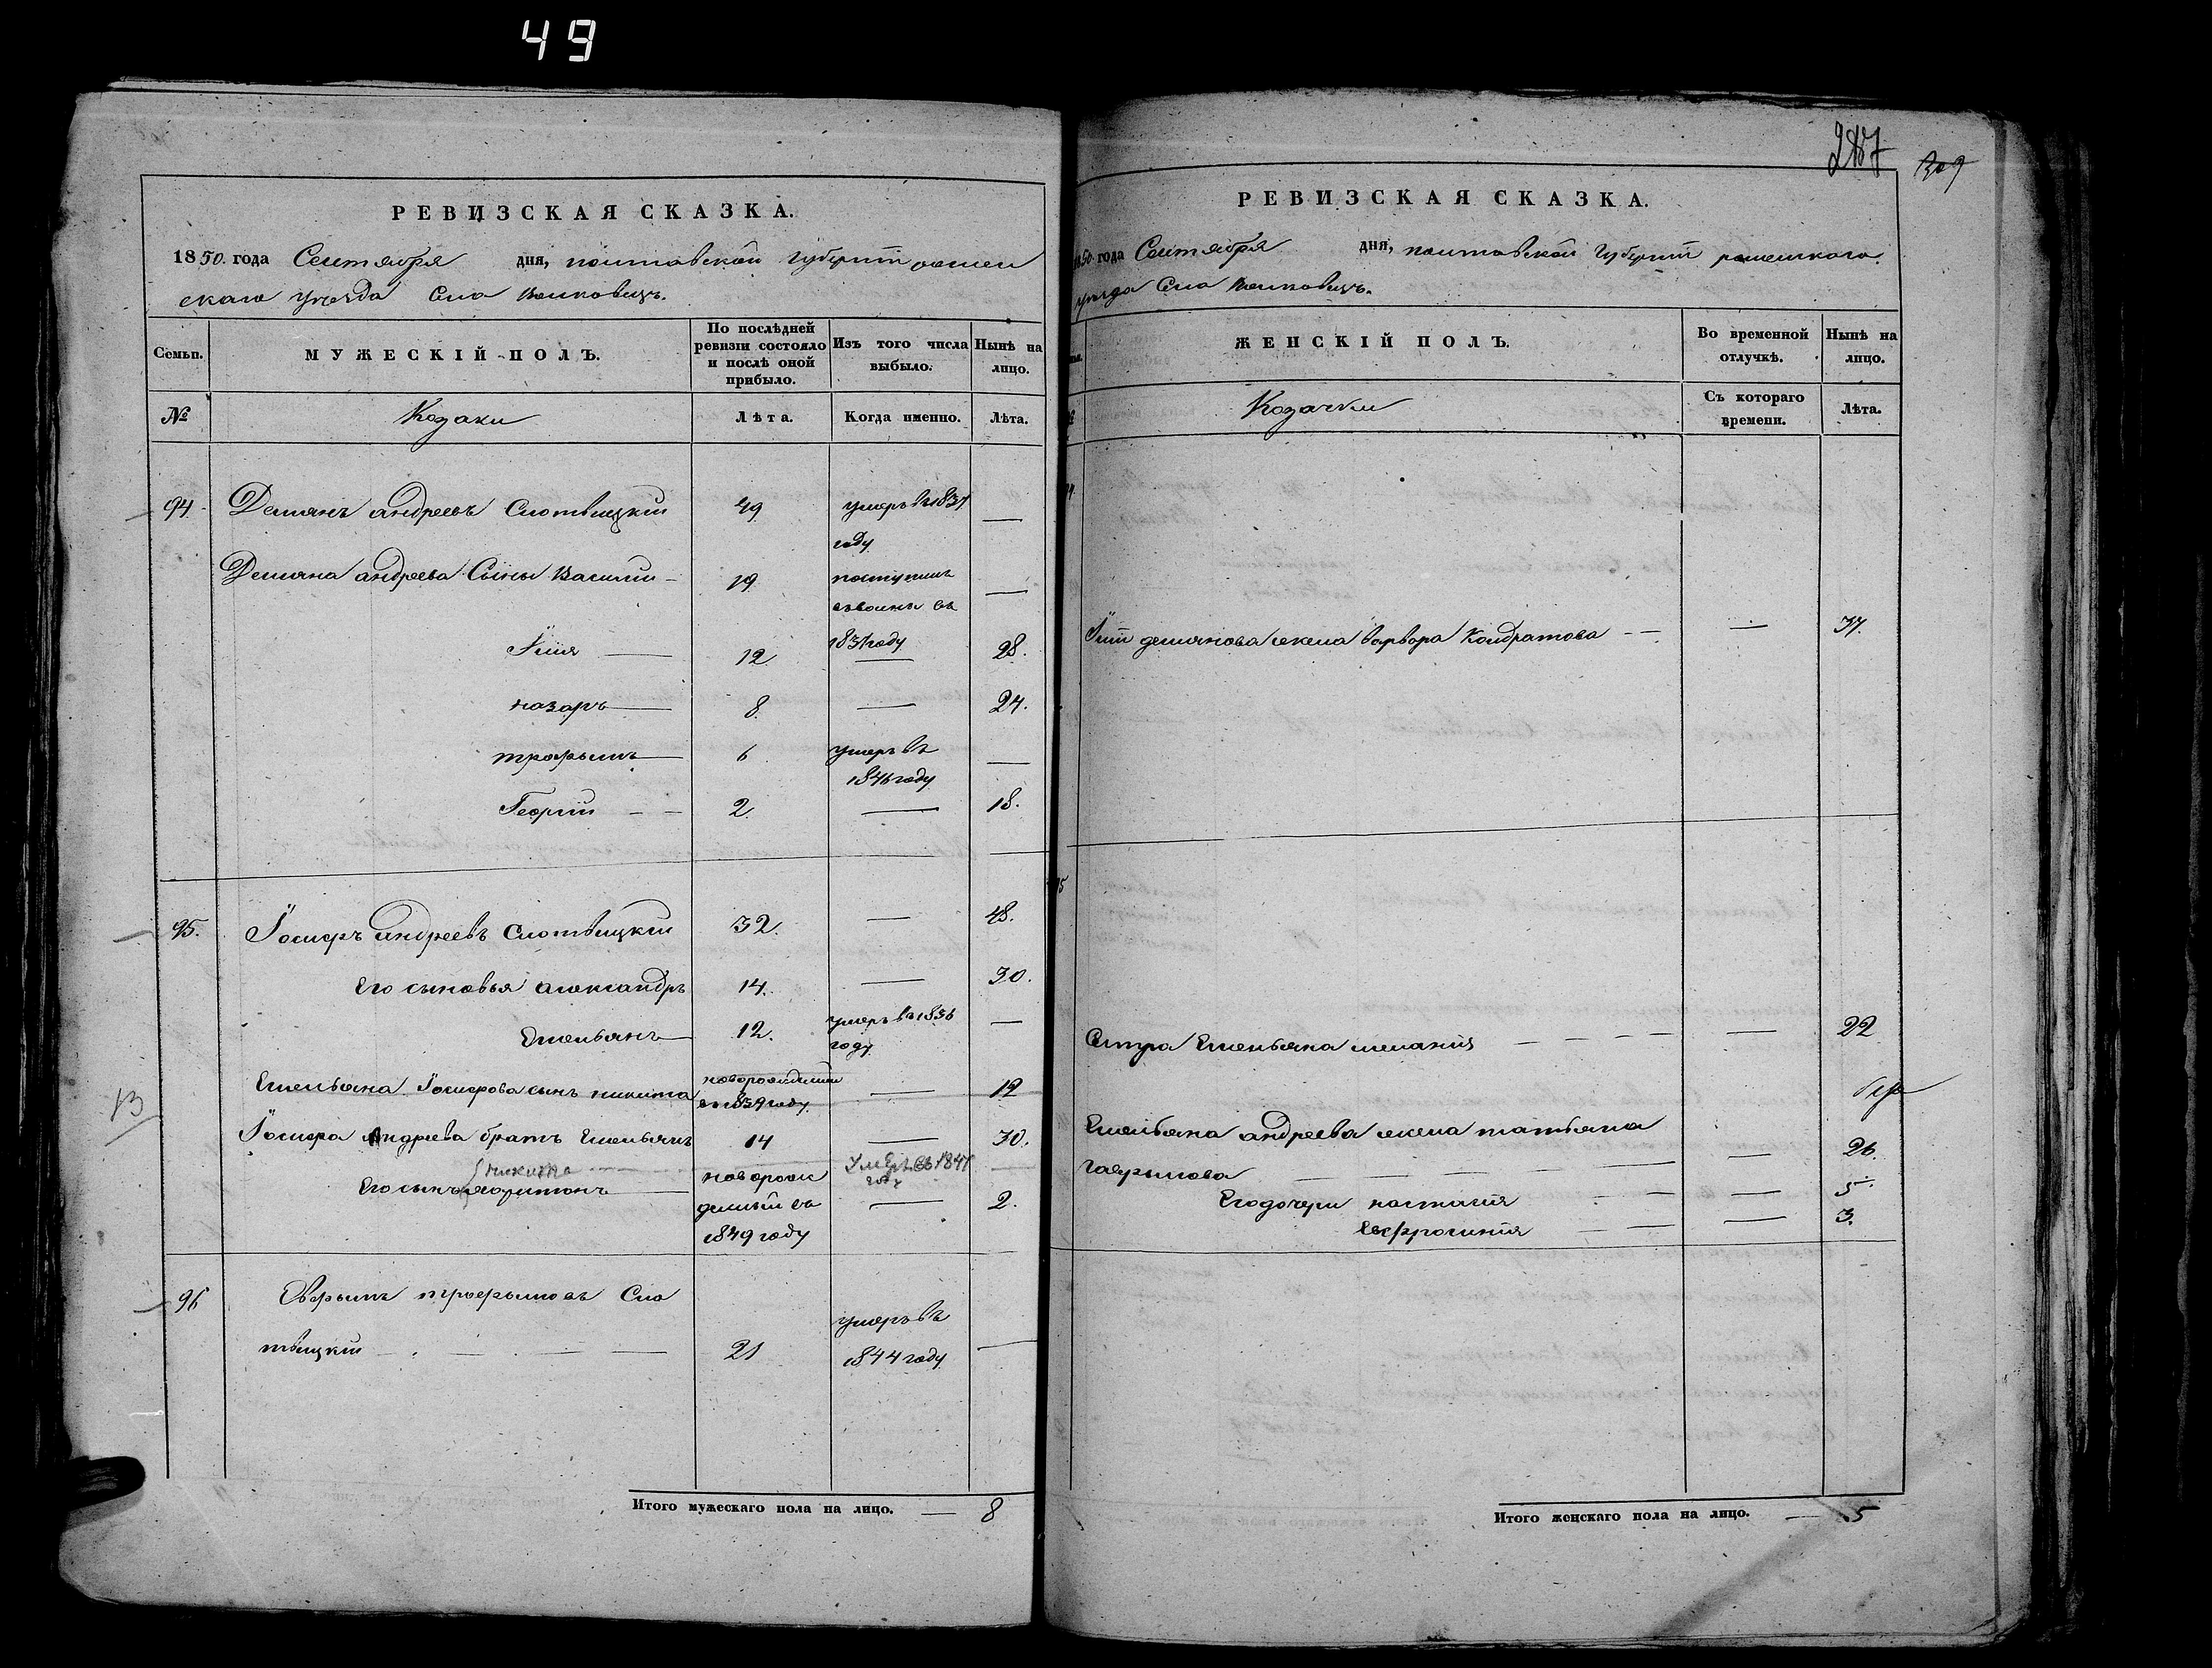 49
287
309
РЕВИЗСКАЯ СКАЗКА.
1850. года Сентября дня, полтавской губерніи ромен
скаго уезда Села Волковцъ.
Семьи. МУЖЕСКІЙ ПОЛЪ. По послѣдней ревизіи состояло и послѣ оной прибыло. Изъ того числа выбыло. Нынѣ на лицо.
№ Козаки Лѣта. Когда именно. Лѣта.
94. Демянъ андреевъ Слотвицкій 49 умеръ въ 1837 году —
Демяна андреева Сыны Василий 19 поступилъ въ 1837 году —
Илія 12 — 28.
назаръ 8. — 24.
трофымъ 6 умеръ въ 1846 году —
Георгій 2. — 18.
95. Іосифъ андреевъ Слотвицкій 32. — 48.
Его сыновья александръ 14. — 30.
Емельянъ 12. умеръ въ 1836 году —
Емельяна Іосифова сынъ никита новорожденный въ 1839 году — 12
13
Іосифа Андреева братъ Емельянъ 14 — 30.
никита Умеръ въ 1841 году
Его сынъ харитонъ новорож денный въ 1849 году — 2.
96 трофымовъ Сло
твицкій 21 умеръ въ 1844 году —
Итого мужескаго пола на лицо. — 8
РЕВИЗСКАЯ СКАЗКА.
1850 года Сентября дня, полтавской губерніи роменскаго
уезда Села Волковцъ.
ЖЕНСКІЙ ПОЛЪ. Во временной отлучкѣ. Нынѣ на лицо.
Козачки Съ котораго времени. Лѣта.
Іліи демянова жена варвара Кондратова — 37.
95
Сестра Емельяна меланія — 22
Емельяна андреева жена татьяна
гаврылова — 26.
Его дочери настасія — 5.
Евфросинія — 3.
Итого женскаго пола на лицо. — 5